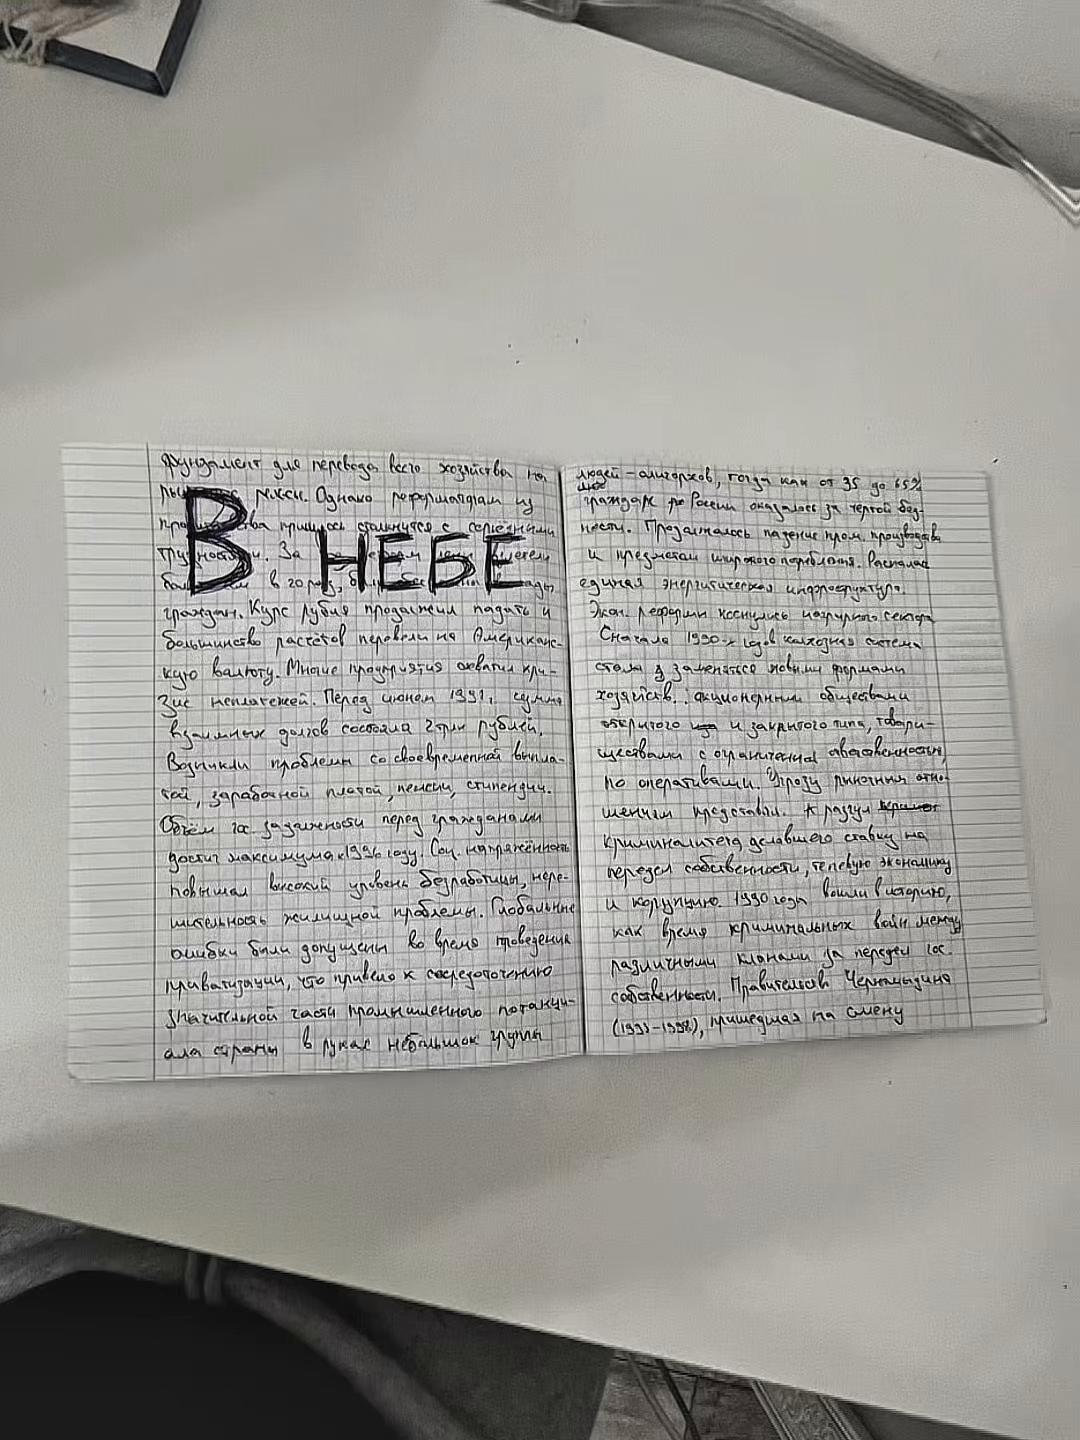 фундамент для перевода всего хозяйства на
рельсы. Однако реформаторам из
пришлось столкнутся с серьёзными
трудностями. За
В НЕБЕ
в 20 раз,
граждан. Курс рубля продолжил падать и
большинство расчётов перевели на Американс-
кую валюту. Многие предприятия охватил кри-
зис неплатежей. Перед июнем 1991, сумма
взаимных долгов состовила 2 трлн рублей.
Возникли проблемы со своевременной выпла-
той, заработной платой, пенсии, стипендии.
Объём гос задолжености перед гражданами
достиг максимума к 1996 году. Соц. напряжённость
повышал высокий уровень безработицы, нере-
шительность жилищной проблемы. Глобальные
ошибки были допущены во время проведения
приватизации, что привело к сосредоточению
значительной части промышленного потанци-
ала страны в руках небольшок группы
людей - алигорхов, тогда как от 35 до 65%
граждан России оказалось за чертой бед-
ности. Продолжалось падение пром. производства
и предметам широкого потребления. Распалась
единая энергитическая
Экон. реформы коснулись сектора
Сначала 1990-х годов колхозная система
стала заменяться новыми формами
хозяйств. акционерными обществами
открытого и закрытого типа, товари-
ществами с ограниченной
по оперативами. Угрозу рыночным отно-
шениям представил. К разгул
криминалитета делавшего ставку на
передел собственности, теневую экономику
и корупцию. 1990 года вошли в историю,
как время криминальных войн между
различными кланами за передел гос.
собственности. Правительств Черномырдина
(1993-1998), пришедшая на смену